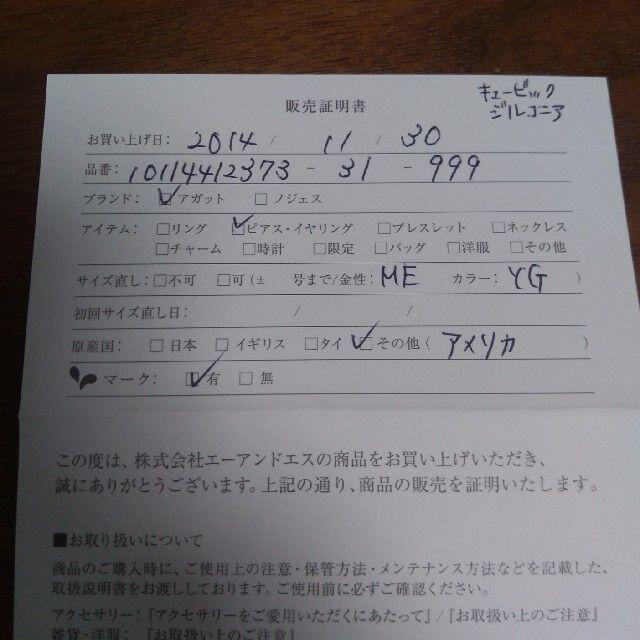 キュービック
ジルコニア
販売証明書
お買い上げ日: 2014 / 11 / 30
品番: 10114412373 - 31 - 999
ブランド: ☑アガット □ノジェス
アイテム: □リング ☑ピアス・イヤリング □ブレスレット □ネックレス
□チャーム □時計 □限定 □バッグ □洋服 □その他
サイズ直し: □不可 □可(± 号まで/金性: ME カラー: YG )
初回サイズ直し日: / /
原産国: □日本 □イギリス □タイ ☑その他( アメリカ )
マーク: ☑有 □無
この度は、株式会社エーアンドエスの商品をお買い上げいただき、
誠にありがとうございます。上記の通り、商品の販売を証明いたします。
■お取り扱いについて
商品のご購入時に、ご使用上の注意・保管方法・メンテナンス方法などを記載した、
取扱説明書をお渡ししております。ご使用前に必ずご確認ください。
アクセサリー:『アクセサリーをご愛用いただくにあたって』/『お取扱い上のご注意』
雑貨・洋服: 『お取扱い上のご注意』